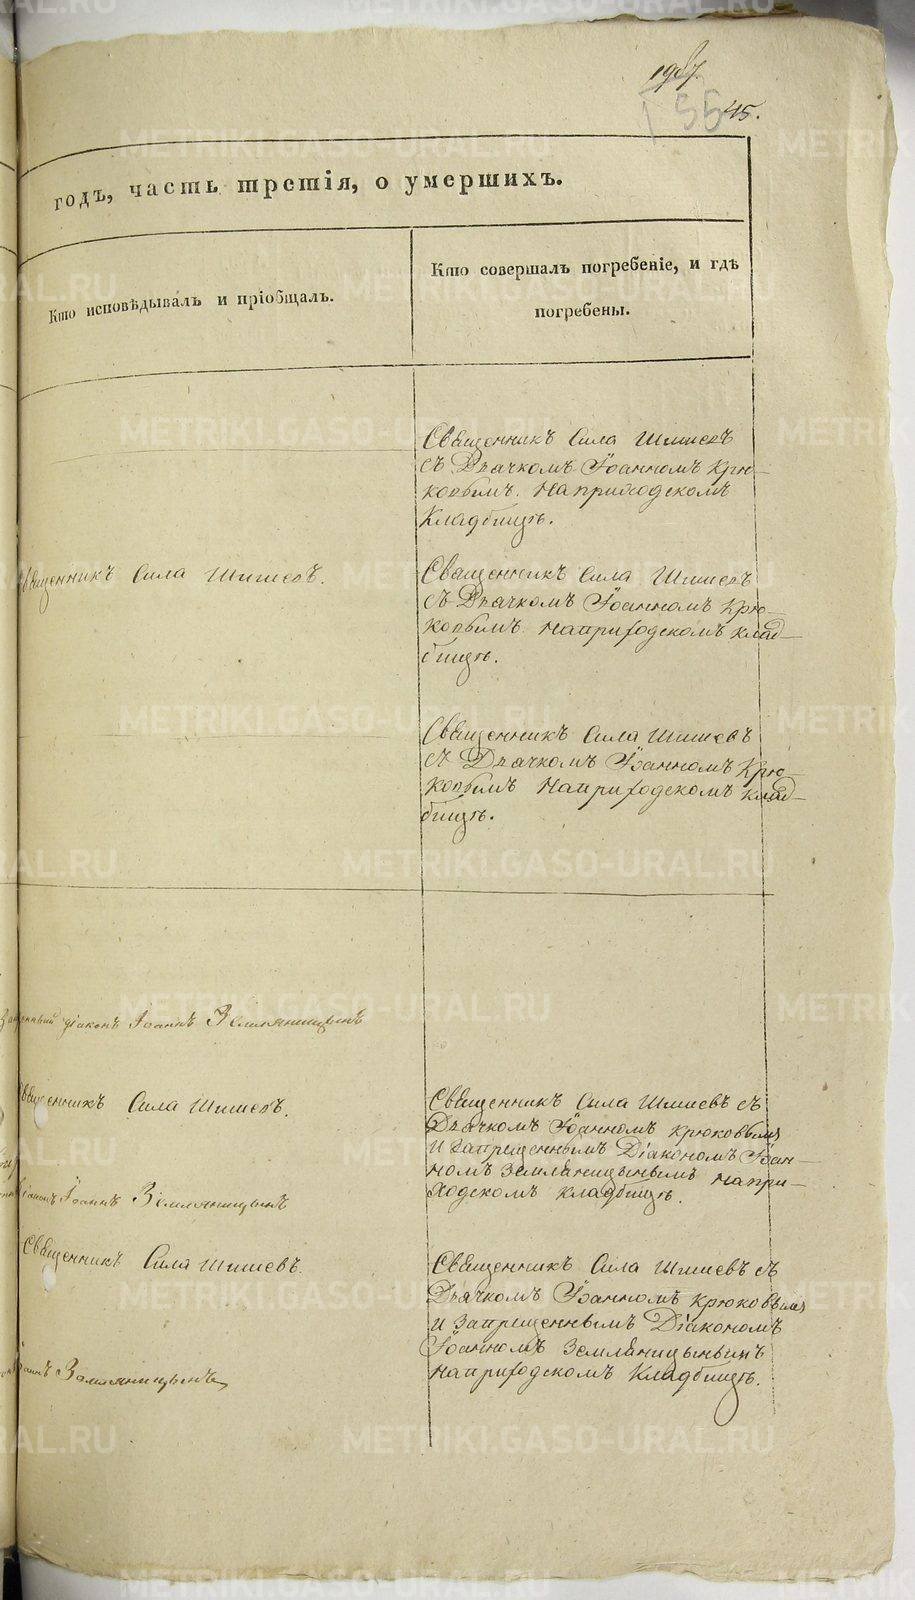 45.
годъ, часть третія, о умершихъ.
Кто исповѣдывалъ и пріобщалъ.
Кто совершалъ погребеніе, и гдѣ
погребены.
Священникъ Сила Шишевъ
съ Дьячкомъ Іоанномъ Крю-
ковымъ. На приходскомъ
Кладбищѣ.
Священникъ Сила Шишевъ.
Священникъ Сила Шишевъ
съ Дьячкомъ Іоанномъ Крю-
ковымъ на приходскомъ клад-
бищѣ.
Священникъ Сила Шишевъ
съ Дьячкомъ Іоанномъ Крю-
ковымъ на приходскомъ клад-
бищѣ.
діаконъ Іоаннъ Земляницынъ
Священникъ Сила Шишевъ.
Іоаннъ Земляницынъ
Священникъ Сила Шишевъ съ
Дьячкомъ Іоанномъ Крюковымъ
и запрещеннымъ Діакономъ Іоан-
номъ Земляницынымъ на при-
ходскомъ кладбищѣ.
Священникъ Сила Шишевъ.
Земляницынъ
Священникъ Сила Шишевъ съ
Дьячкомъ Іоанномъ Крюковымъ
и запрещеннымъ Діакономъ
Іоанномъ Земляницынымъ
на приходскомъ Кладбищѣ.
METRIKI.GASO-URAL.RU